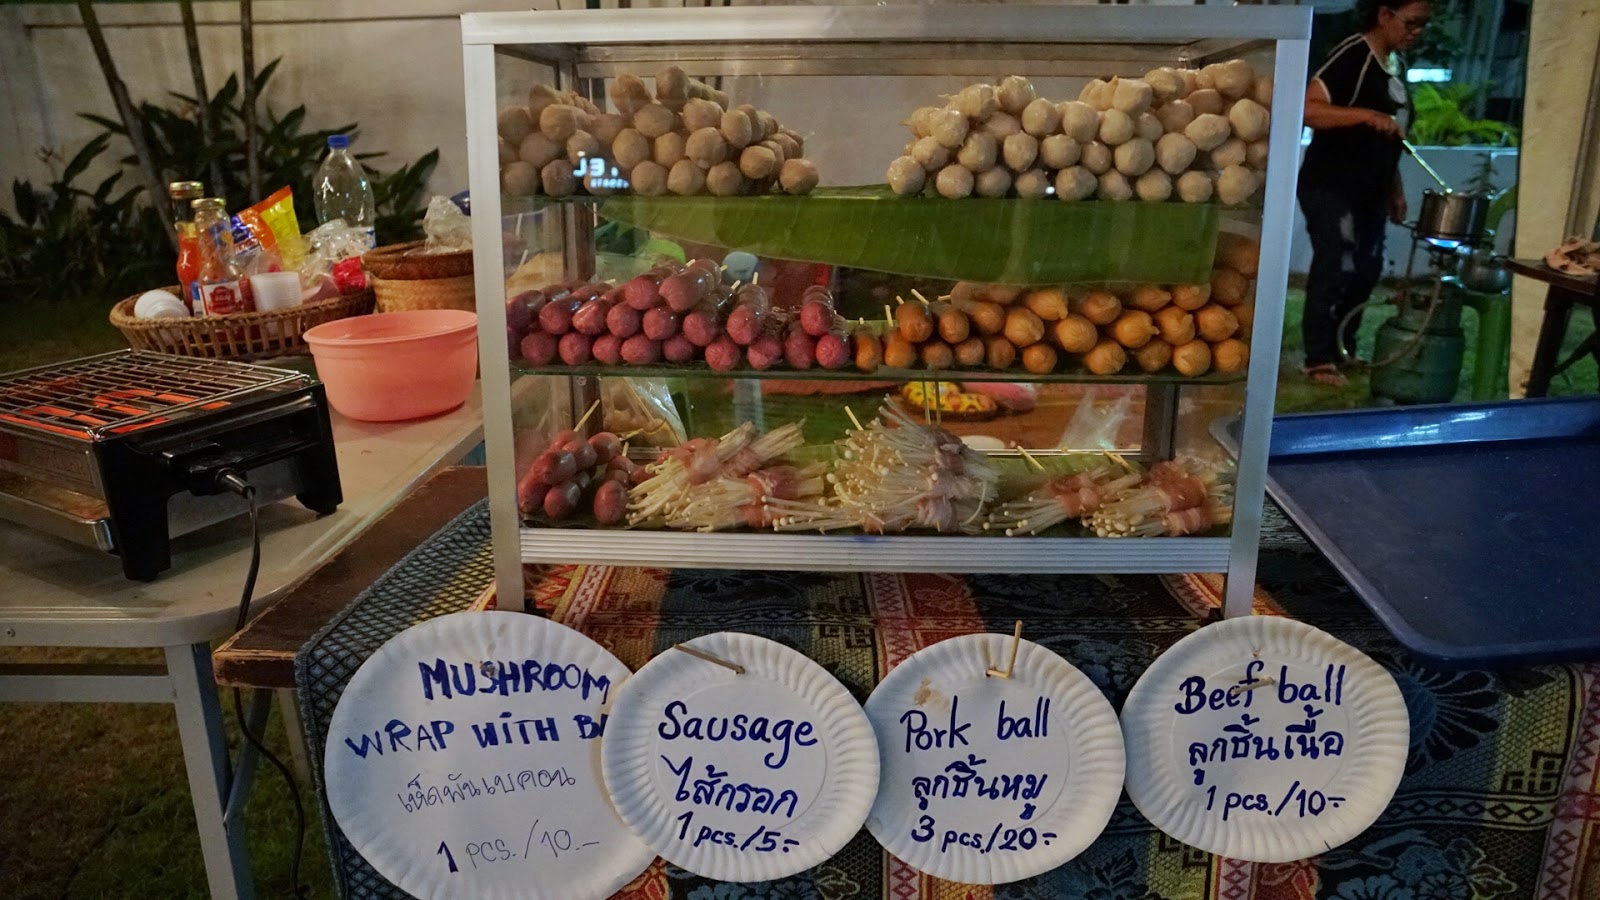 MUSHROOM
WRAP WITH
เห็ดพันเบคอน
1 pcs./10.-
Sausage
ไส้กรอก
1 pcs./5.-
Pork ball
ลูกชิ้นหมู
3 pcs./20.-
Beef ball
ลูกชิ้นเนื้อ
1 pcs./10.-